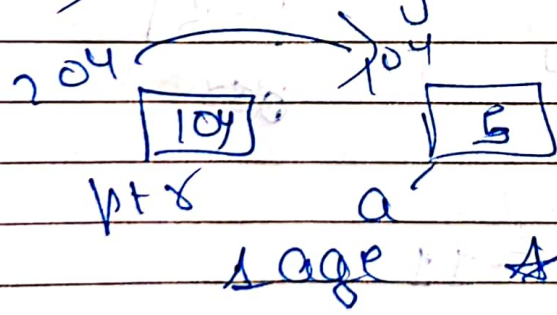 204 104
104 5
ptr a
1 age